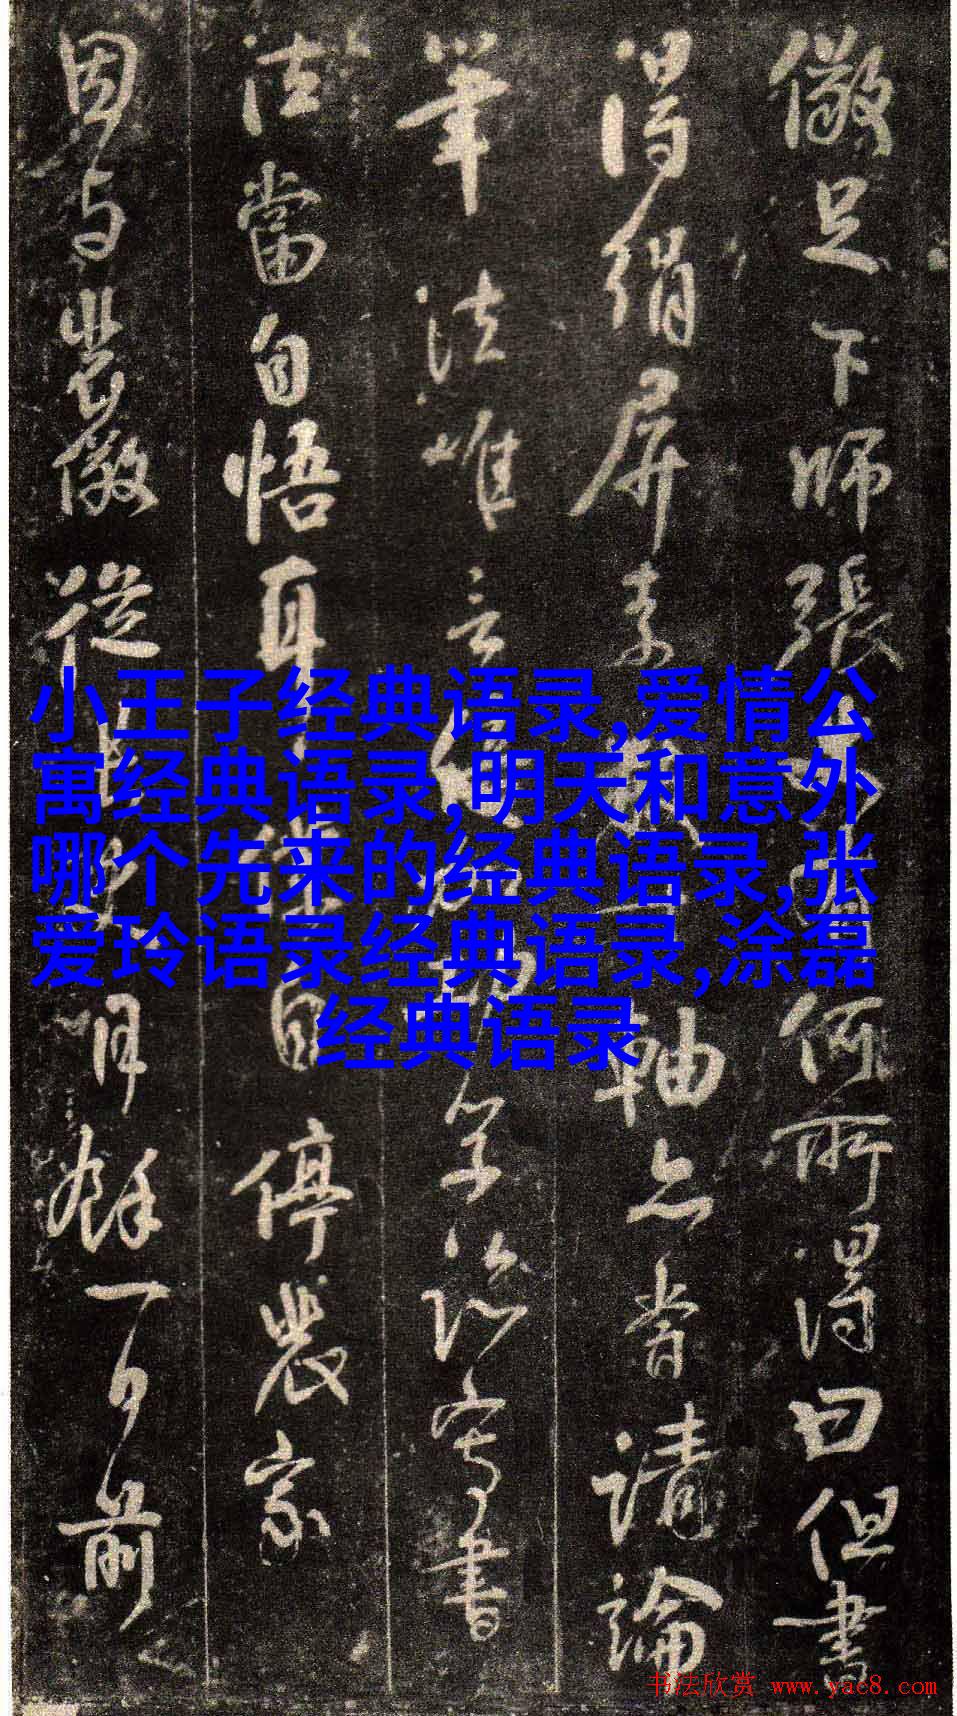 儆足下師張何所得曰但書
得絹屏素軸亦嘗請論
筆法唯言倍學臨寫書
法當自悟耳自停裴家
因与裴儆從月餘一日前
小王子经典语录,爱情公
寓经典语录,明天和意外
哪个先来的经典语录,张
爱玲语录经典语录,涂磊
经典语录
书法欣赏 www.yac8.com